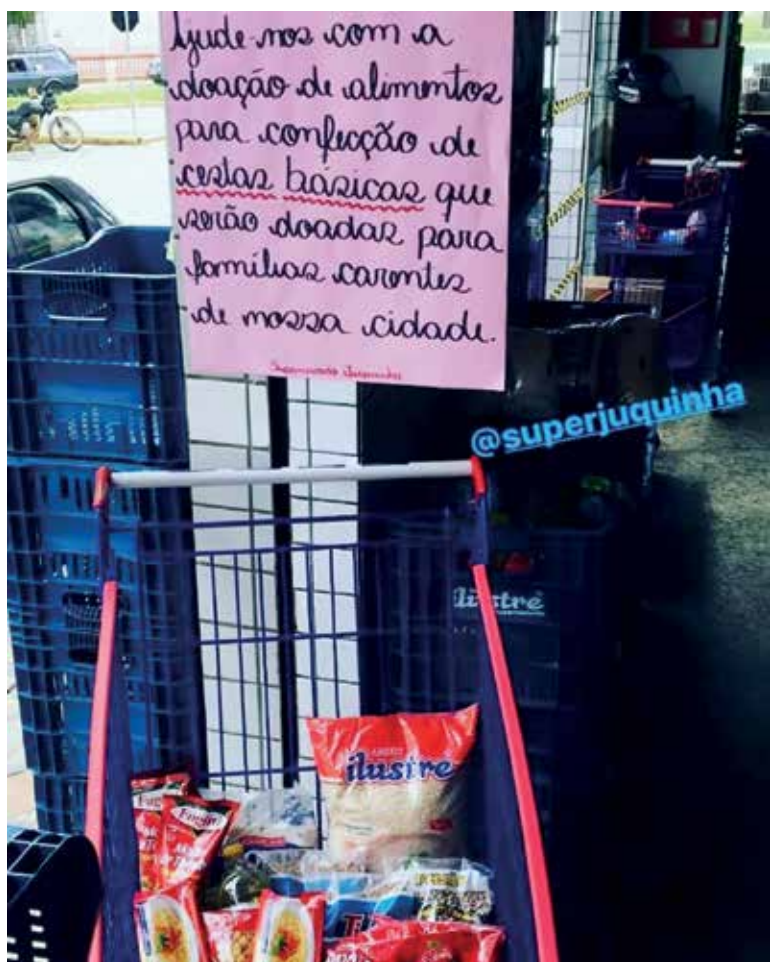 Ajude-nos com a
doação de alimentos
para confecção de
cestas básicas que
serão doadas para
famílias carentes
de nossa cidade.
Supermercado Juquinha
@superjuquinha
ilustre
ilustre
Fugini
Fugini